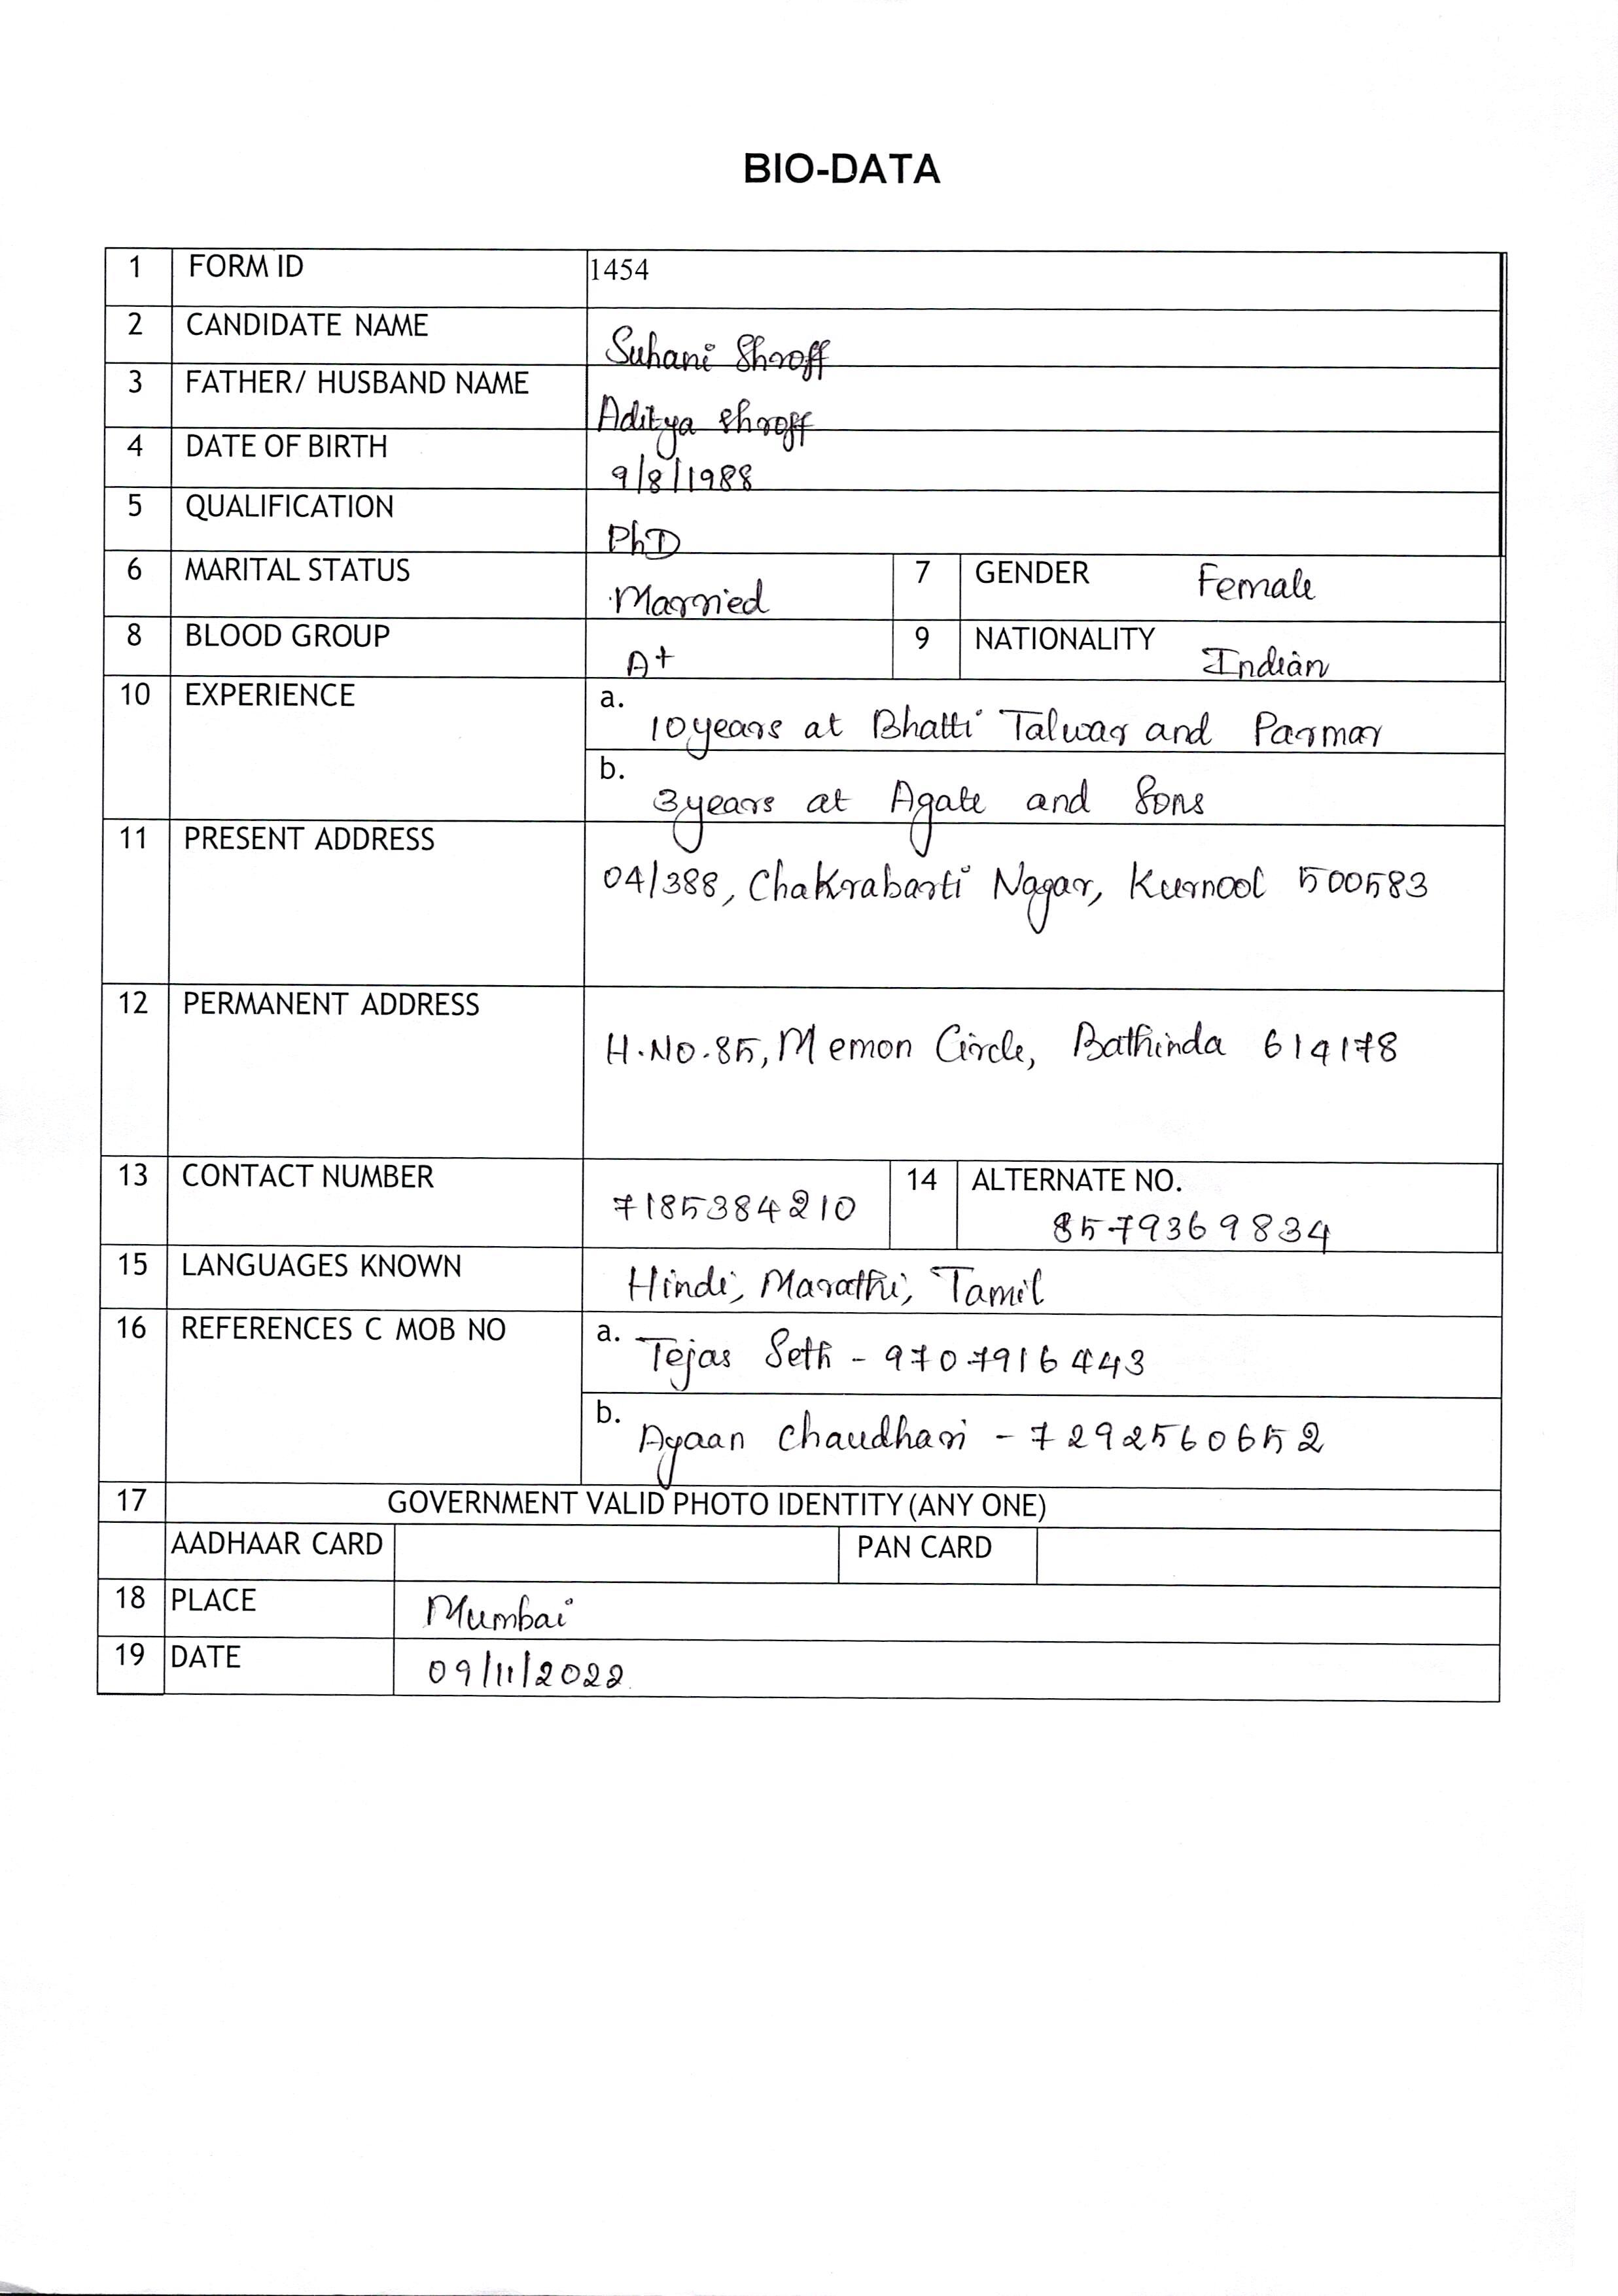 BIO-DATA
1 FORM ID 1454
2 CANDIDATE NAME Suhani Shroff
3 FATHER/ HUSBAND NAME Aditya Shroff
4 DATE OF BIRTH 9/8/1988
5 QUALIFICATION PhD
6 MARITAL STATUS Married 7 GENDER Female
8 BLOOD GROUP A+ 9 NATIONALITY Indian
10 EXPERIENCE a. 10 years at Bhatti Talwar and Parmar
b. 3 years at Agate and Sons
11 PRESENT ADDRESS 04/388, Chakrabarti Nagar, Kurnool 500583
12 PERMANENT ADDRESS H.NO.85, Memon Circle, Bathinda 614178
13 CONTACT NUMBER 7185384210 14 ALTERNATE NO. 8579369834
15 LANGUAGES KNOWN Hindi, Marathi, Tamil
16 REFERENCES C MOB NO a. Tejas Seth - 9707916443
b. Ayaan Chaudhari - 7292560652
17 GOVERNMENT VALID PHOTO IDENTITY (ANY ONE)
AADHAAR CARD PAN CARD
18 PLACE Mumbai
19 DATE 09/11/2022